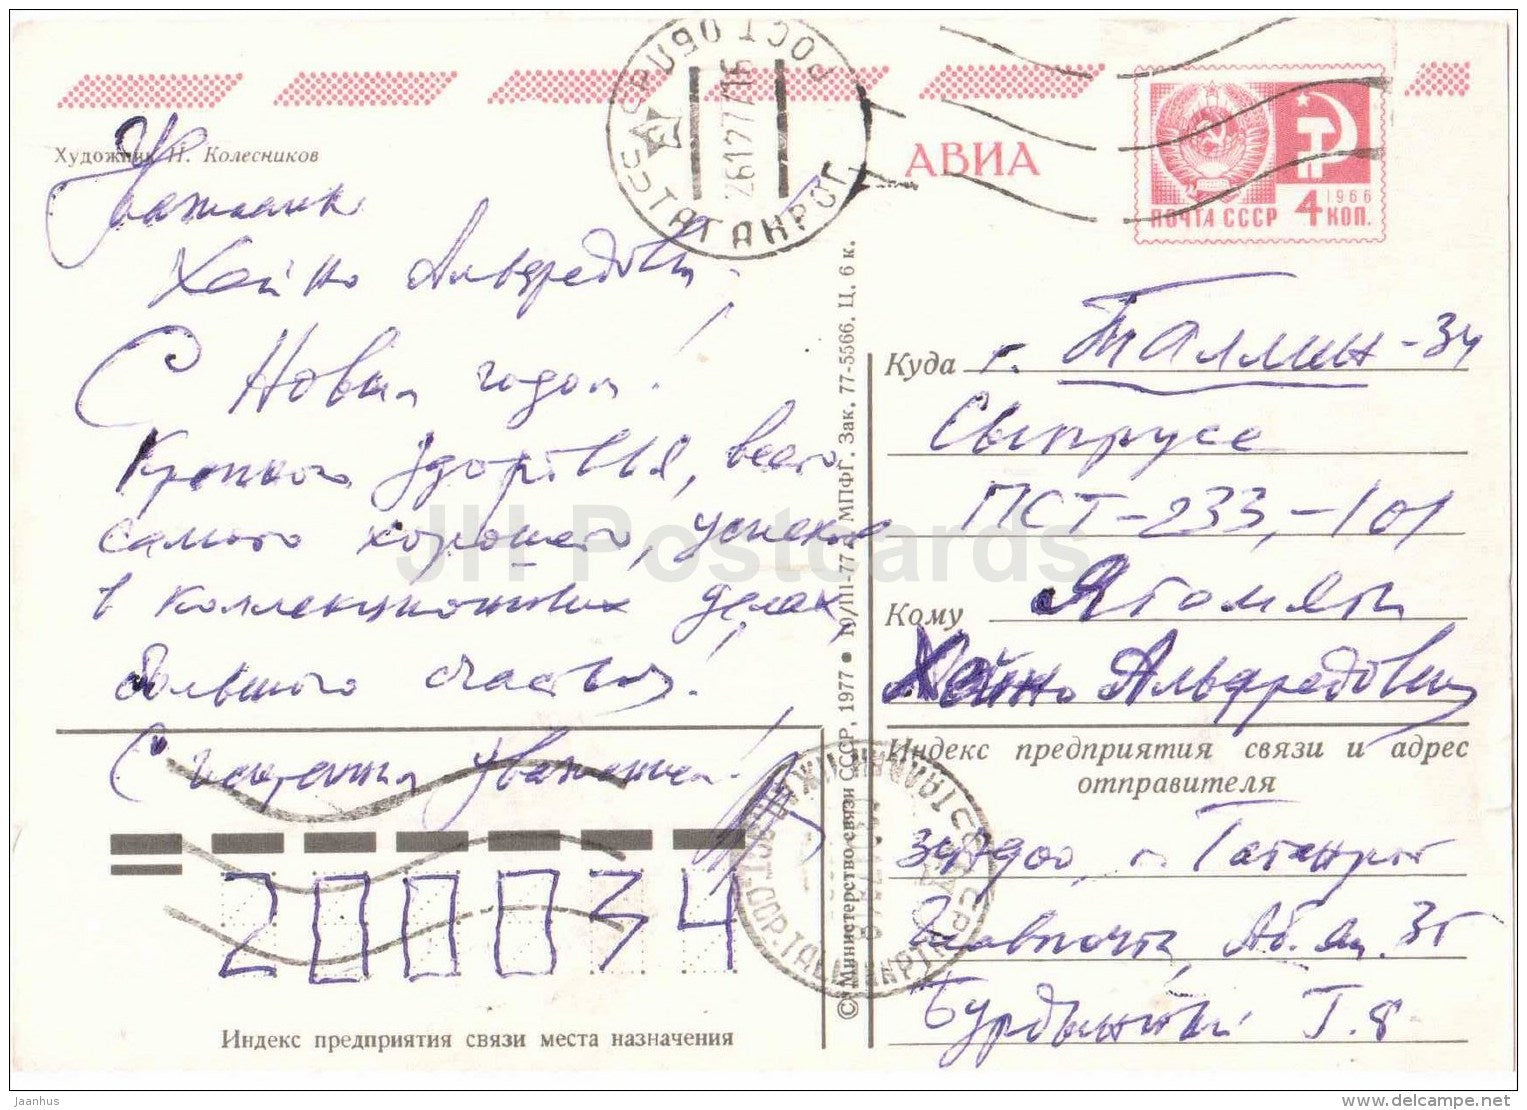 Художник Н. Колесников
АВИА
ПОЧТА СССР 4 КОП.
1966
СССР ТАГАНРОГ РОСТ ОБЛ
Хейно Альфредович!
С Новым годом!
Крепкого здоровья, всего
самого хорошего, успехов
в коллекционных делах,
большого счастья!
С искренним уважением!
200034
Индекс предприятия связи места назначения
© Министерство связи СССР, 1977 • 10/III-77 г. МПФГ. Зак. 77-5566. Ц. 6 к.
Куда г. Таллин-34
Сыпрусе
ПСТ-233,-101
Кому
Хейно Альфредович
Индекс предприятия связи и адрес
отправителя
г. Таганрог
Главпочта, Аб. ящ. 35
JH Postcards
Jaanhus
delcampe.net